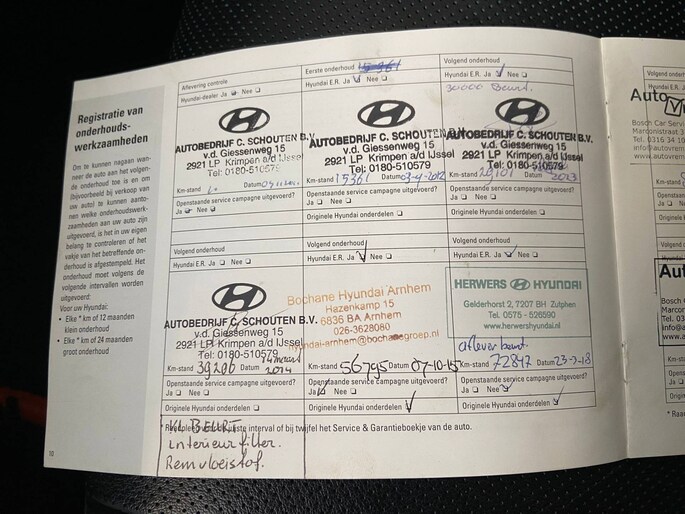 Registratie van
onderhouds-
werkzaamheden
Om te kunnen nagaan wan-
neer de auto aan het volgen-
de onderhoud toe is en om
(bijvoorbeeld bij verkoop van
uw auto) te kunnen aanto-
nen welke onderhoudswerk-
zaamheden aan uw auto zijn
uitgevoerd, is het in uw eigen
belang te controleren of het
vakje van het betreffende on-
derhoud is afgestempeld. Het
onderhoud moet volgens de
volgende intervallen worden
uitgevoerd:
Voor uw Hyundai:
• Elke * km of 12 maanden
klein onderhoud
• Elke * km of 24 maanden
groot onderhoud
10
Aflevering controle
Hyundai-dealer Ja Nee
AUTOBEDRIJF C. SCHOUTEN B.V.
v.d. Giessenweg 15
2921 LP Krimpen a/d IJssel
Tel: 0180-510579
Km-stand Datum
Openstaande service campagne uitgevoerd?
Ja Nee
Eerste onderhoud
Hyundai E.R. Ja Nee
AUTOBEDRIJF C. SCHOUTEN B.V.
v.d. Giessenweg 15
2921 LP Krimpen a/d IJssel
Tel: 0180-510579
Km-stand 15361 Datum 03-4-2012
Openstaande service campagne uitgevoerd?
Ja Nee
Originele Hyundai onderdelen
Volgend onderhoud
Hyundai E.R. Ja Nee
30000 Beurt.
AUTOBEDRIJF C. SCHOUTEN B.V.
v.d. Giessenweg 15
2921 LP Krimpen a/d IJssel
Tel: 0180-510579
Km-stand Datum 2013
Openstaande service campagne uitgevoerd?
Ja Nee
Originele Hyundai onderdelen
Volgend onderhoud
Hyundai E.R. Ja Nee
HYUNDAI
AUTOBEDRIJF C. SCHOUTEN B.V.
v.d. Giessenweg 15
2921 LP Krimpen a/d IJssel
Tel: 0180-510579
Km-stand 39206 Datum 14 maart 2014
Openstaande service campagne uitgevoerd?
Ja Nee
Originele Hyundai onderdelen
Volgend onderhoud
Hyundai E.R. Ja Nee
Bochane Hyundai Arnhem
Hazenkamp 15
6836 BA Arnhem
026-3628080
hyundai-arnhem@bochanegroep.nl
Km-stand 56795 Datum 07-10-15
Openstaande service campagne uitgevoerd?
Ja Nee
Originele Hyundai onderdelen
Volgend onderhoud
Hyundai E.R. Ja Nee
HERWERS HYUNDAI
Gelderhorst 2, 7207 BH Zutphen
Tel. 0575 - 526590
www.herwershyundai.nl
aflever beurt.
Km-stand 72847 Datum 23-7-18
Openstaande service campagne uitgevoerd?
Ja Nee
Originele Hyundai onderdelen
interval of bij twijfel het Service & Garantieboekje van de auto.
KL BEURT
interieurfilter.
Remvloeistof.
Volgend onderhoud
Hyundai E.R. Ja
Auto
Bosch Car Serv
Marconistraat 3
Tel. 0316 34 10
www.autovrem
Km-stand
Openstaande serv
Ja Nee
Originele Hyundai
Volgend onderhoud
Hyundai E.R. Ja
Aut
Bosch C
Marconi
Tel. 03
info@a
www.a
Km-stand
Openstaande ser
Ja Nee
Originele Hyunda
* Raad